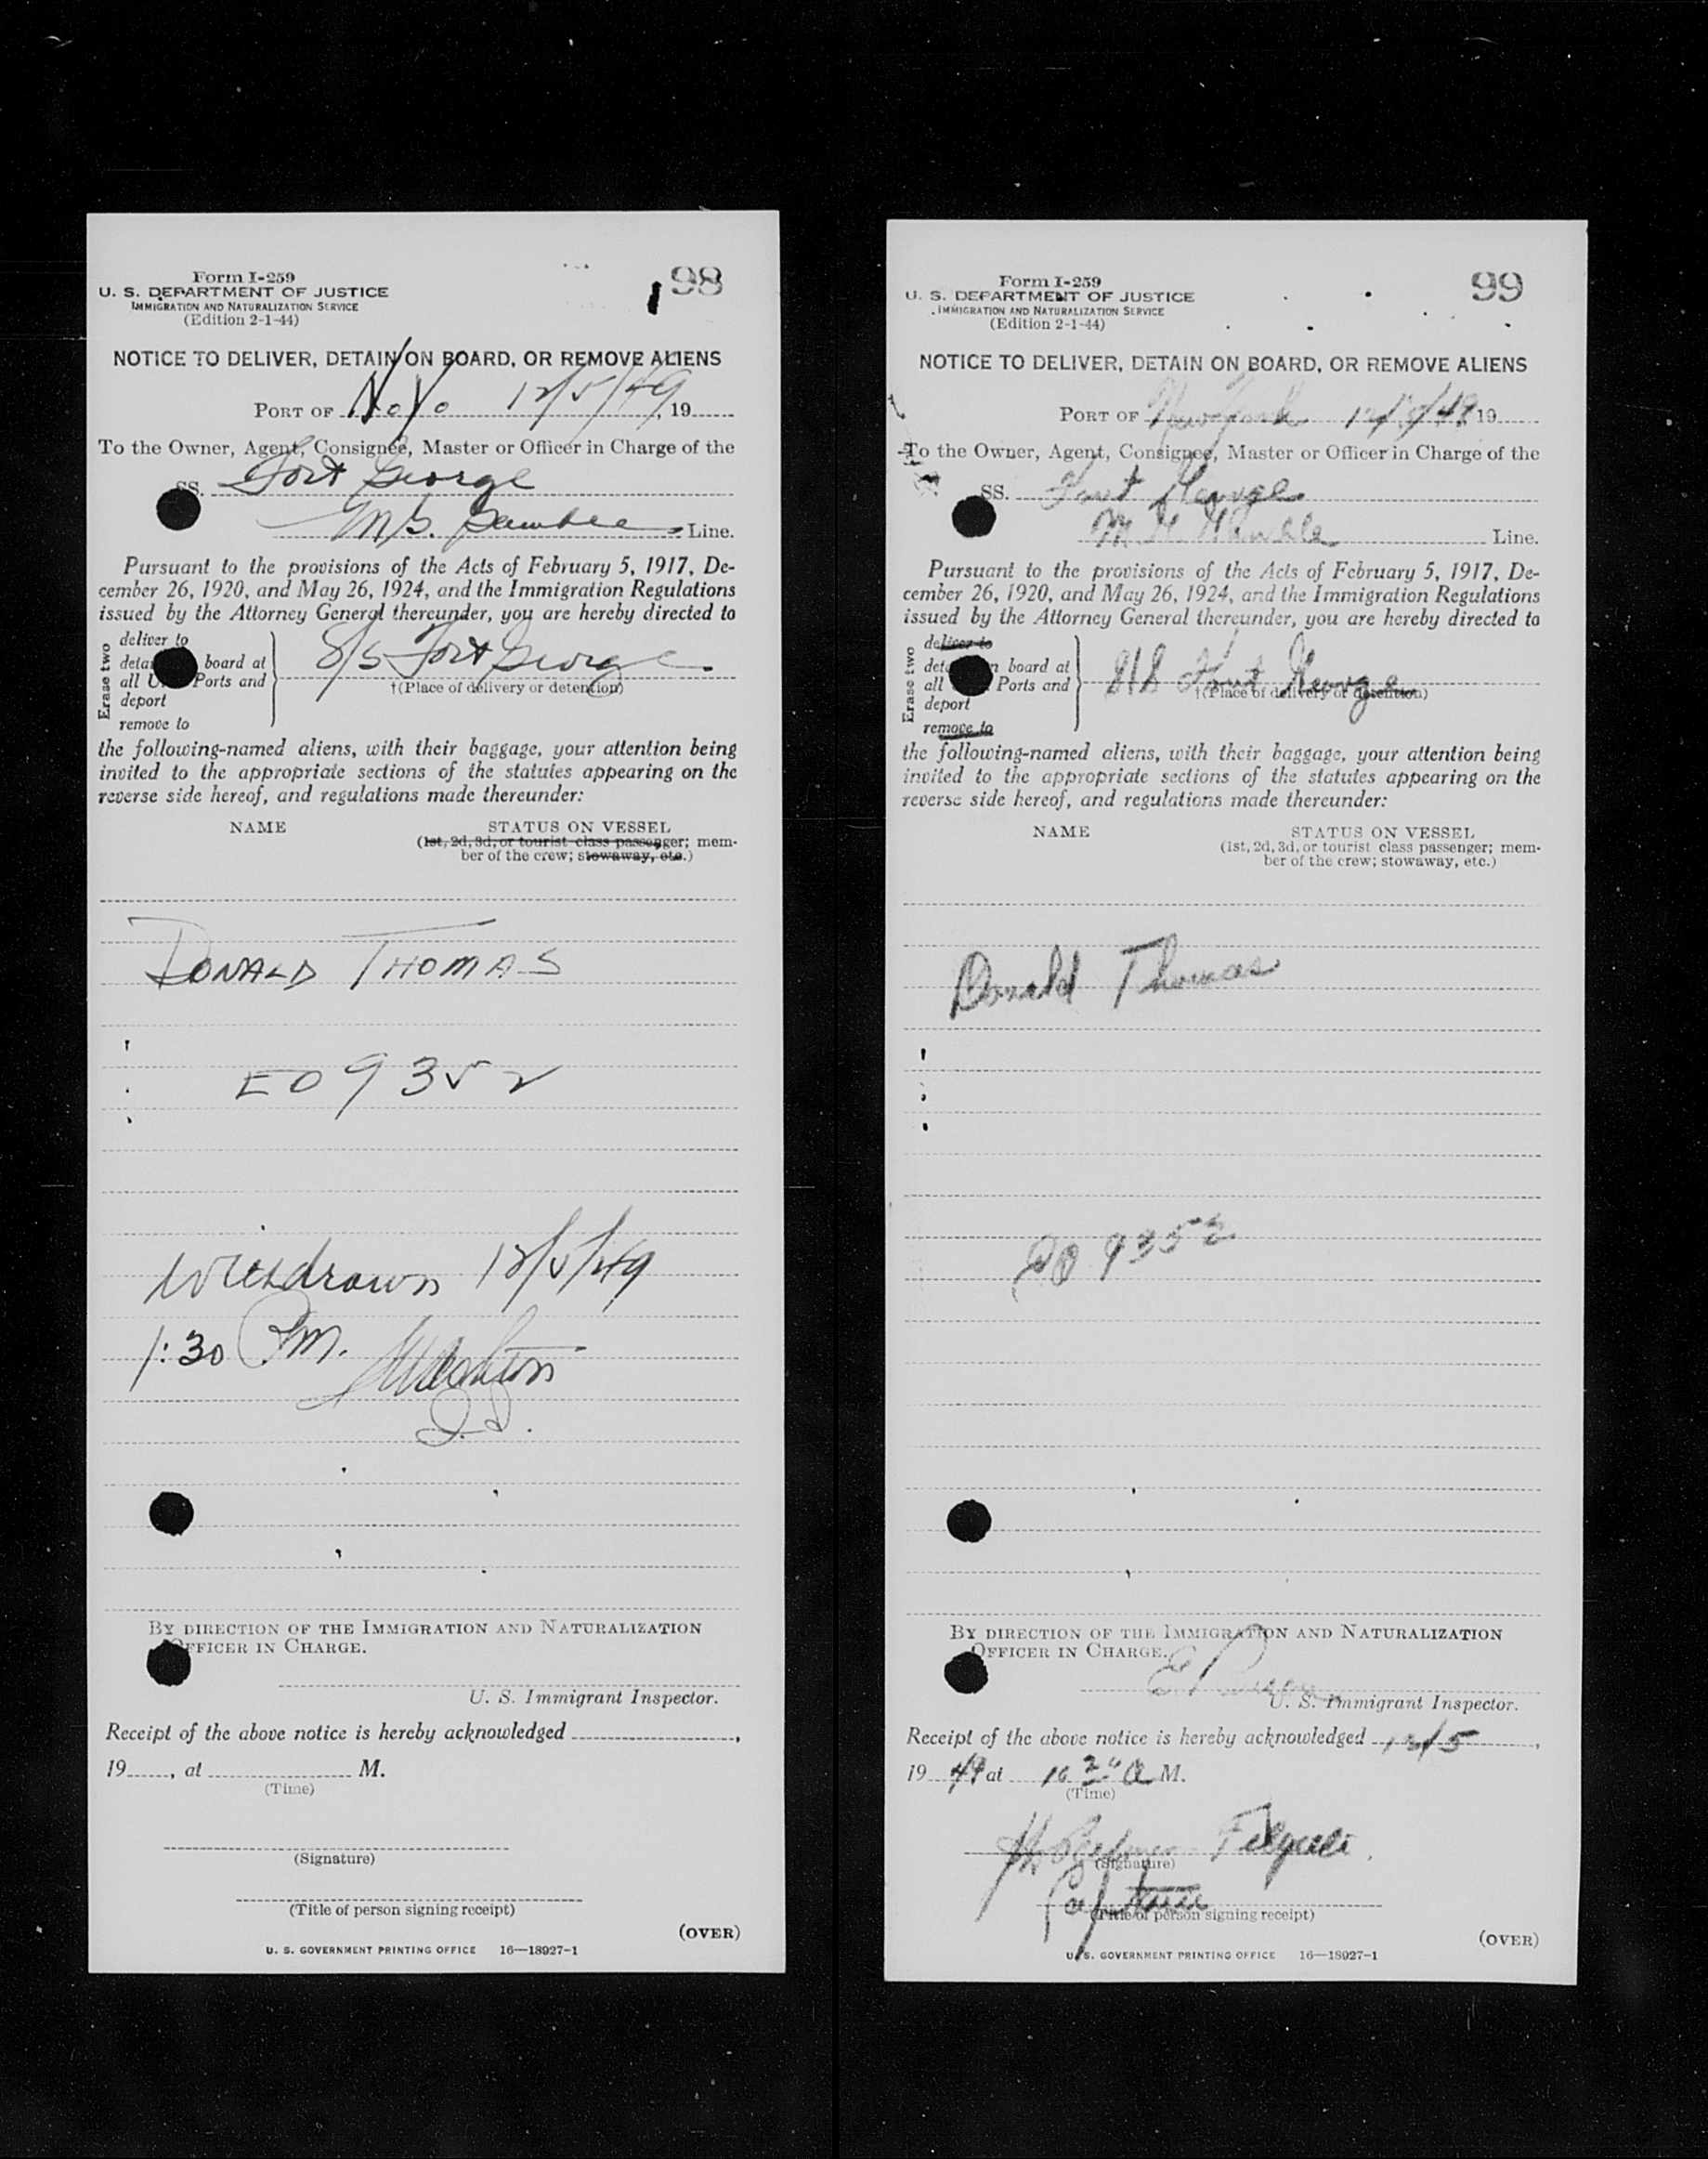 98
Form I-259
U. S. DEPARTMENT OF JUSTICE
IMMIGRATION AND NATURALIZATION SERVICE
(Edition 2-1-44)
NOTICE TO DELIVER, DETAIN ON BOARD, OR REMOVE ALIENS
PORT OF 12/5/49, 19
To the Owner, Agent, Consignee, Master or Officer in Charge of the
SS. Fort George
Line.
Pursuant to the provisions of the Acts of February 5, 1917, De-
cember 26, 1920, and May 26, 1924, and the Immigration Regulations
issued by the Attorney General thereunder, you are hereby directed to
Erase two
deliver to
board at
all Ports and
deport
remove to
S/S Fort George
†(Place of delivery or detention)
the following-named aliens, with their baggage, your attention being
invited to the appropriate sections of the statutes appearing on the
reverse side hereof, and regulations made thereunder:
NAME STATUS ON VESSEL
(1st, 2d, 3d, or tourist class passenger; mem-
ber of the crew; stowaway, etc.)
DONALD THOMAS
E09352
Withdrawn 12/5/49
1:30 P.M.
BY DIRECTION OF THE IMMIGRATION AND NATURALIZATION
OFFICER IN CHARGE.
U. S. Immigrant Inspector.
Receipt of the above notice is hereby acknowledged ,
19 , at M.
(Time)
(Signature)
(Title of person signing receipt)
(OVER)
U. S. GOVERNMENT PRINTING OFFICE 16—18927-1
99
Form I-259
U. S. DEPARTMENT OF JUSTICE
IMMIGRATION AND NATURALIZATION SERVICE
(Edition 2-1-44)
NOTICE TO DELIVER, DETAIN ON BOARD, OR REMOVE ALIENS
PORT OF New York 19
To the Owner, Agent, Consignee, Master or Officer in Charge of the
SS. Fort George
Line.
Pursuant to the provisions of the Acts of February 5, 1917, De-
cember 26, 1920, and May 26, 1924, and the Immigration Regulations
issued by the Attorney General thereunder, you are hereby directed to
Erase two
deliver to
board at
all Ports and
deport
remove to
S/S Fort George
†(Place of delivery or detention)
the following-named aliens, with their baggage, your attention being
invited to the appropriate sections of the statutes appearing on the
reverse side hereof, and regulations made thereunder:
NAME STATUS ON VESSEL
(1st, 2d, 3d, or tourist class passenger; mem-
ber of the crew; stowaway, etc.)
Donald Thomas
9352
BY DIRECTION OF THE IMMIGRATION AND NATURALIZATION
OFFICER IN CHARGE.
U. S. Immigrant Inspector.
Receipt of the above notice is hereby acknowledged 12/5,
19 49 at A M.
(Time)
(Signature)
(Title of person signing receipt)
(OVER)
U. S. GOVERNMENT PRINTING OFFICE 16—18927-1